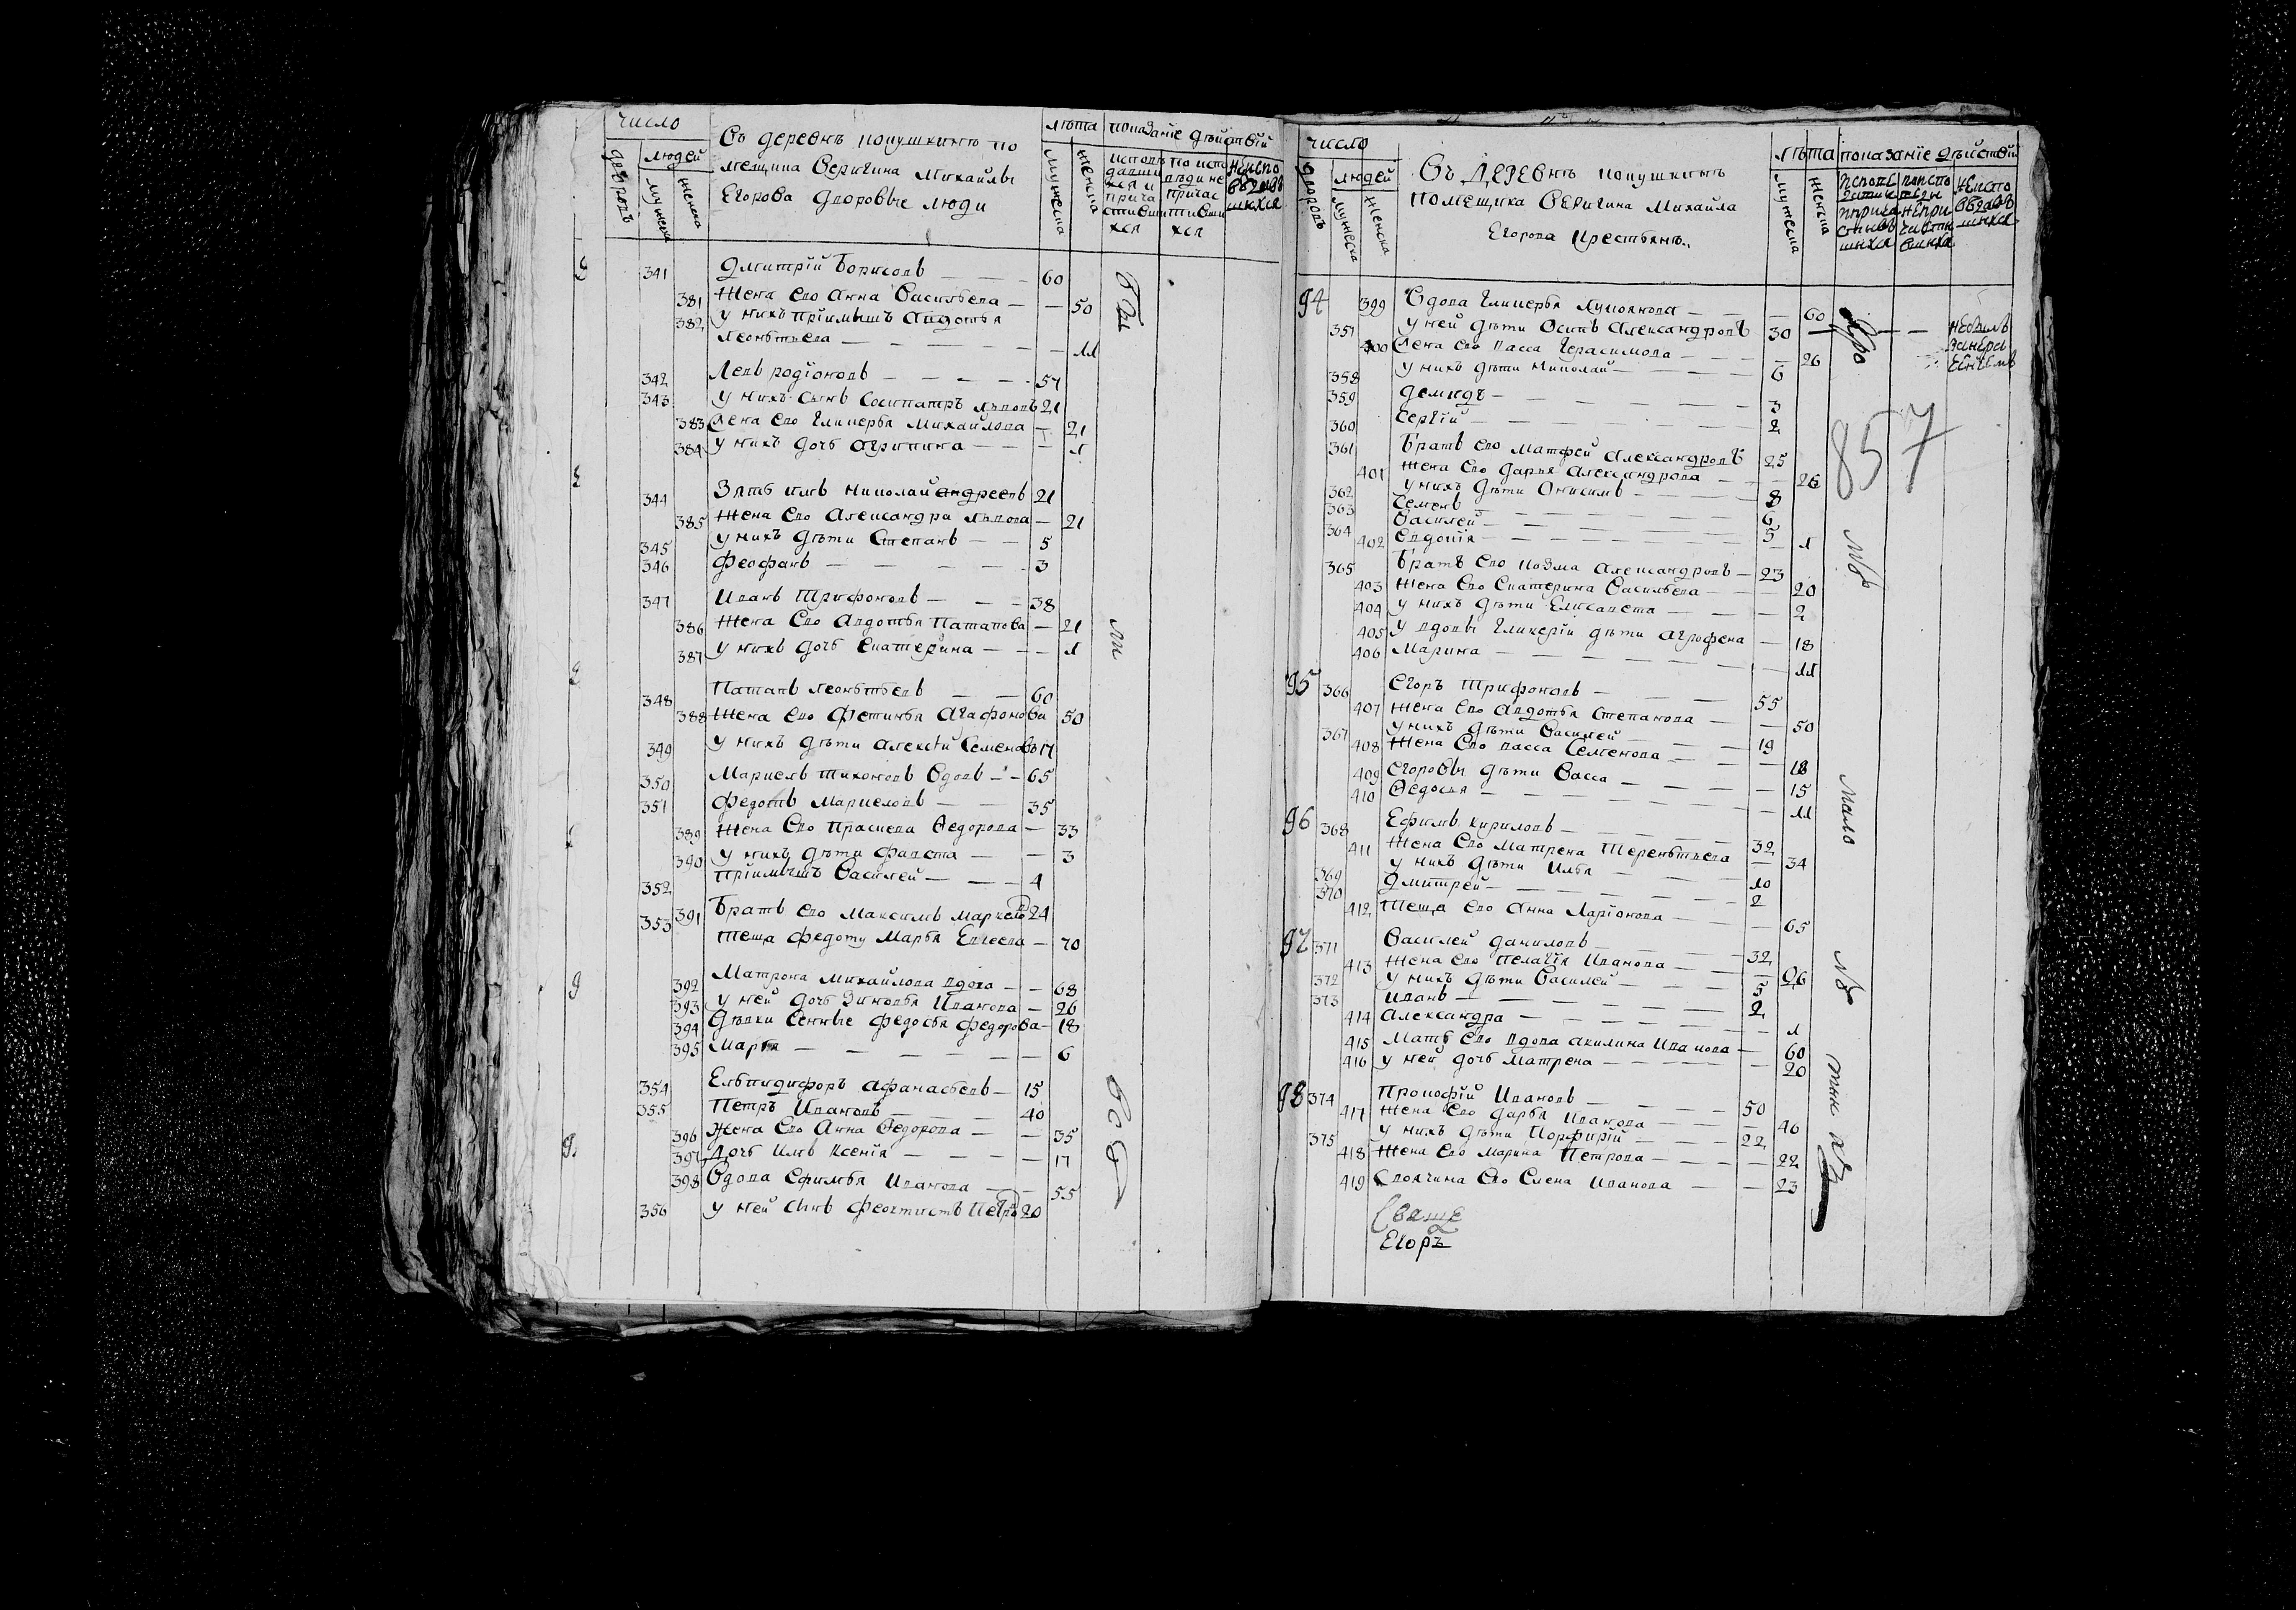 число
людей
дворовъ
мужеска
женска
Въ деревнѣ кокушкинѣ по
мещика Веригина Михаилы
Егорова дворовые люди
лѣта
мужеска
женска
показанїе дѣйствїй
341 Дмитрїй Борисовъ — 60
381 Жена Его Анна Васильева — 50
382 у нихъ прїимышъ Авдотья
Леонтьева — 11
342 Левъ родїоновъ — 57
343 у нихъ сынъ Сосипатръ львовъ 21
383 Жена Его Гликерья Михайлова — 21
384 у нихъ дочь Агрипина — 1
344 Зять имъ Николай андреевъ 21
385 Жена Его Александра львова — 21
345 у нихъ дѣти Степанъ — 5
346 Феофанъ — 3
347 Иванъ Трифоновъ — 38
386 Жена Его Авдотья Патапова — 21
387 у нихъ дочь Екатерина — 1
348 Патапъ леоньтьевъ — 60
388 Жена Его Фетинья Агафонова 50
349 у нихъ дѣти Алексѣй Семеновъ 17
350 Маркелъ тихоновъ Вдовъ — 65
351 Федотъ Маркеловъ — 35
389 Жена Его Прасковa Ѳедорова — 33
390 у нихъ дѣти Фавста — 3
352 прїимышъ Василей — 4
353 391 Братъ Его Максимъ Маркело 24
теща Федоту Марья Евсеева — 70
392 Матрона Михайлова вдова — 68
393 у ней дочь Зиновья Иванова — 26
394 Дѣвки Сенные Федосья Федорова — 18
395 Марья — 6
354 Ельпидифоръ Афанасьевъ — 15
355 Петръ Ивановъ — 40
396 Жена Его Анна Ѳедорова — 35
397 Дочь имъ Ксенїя — 17
398 Вдова Ефимья Иванова — 55
356 у ней сынъ Феоктистъ Петро 20
число
людей
дворовъ
мужеска
женска
Въ Деревнѣ кокушкинѣ
помещика Веригина Михаила
Егорова крестьянъ
лѣта
мужеска
женска
показанїе дѣйствїй
94 399 Вдова Гликерья лукоянова — 60
357 у ней дѣти Осипъ Александровъ 30
400 Жена его васса Герасимова — 26
358 у нихъ дѣти Николай — 6
359 демидъ — 3
360 Сергїй — 2
857
361 Братъ Его Матфей Александровъ 25
401 Жена Его дарья Александрова — 26
362 у нихъ дѣти Онисимъ — 8
363 Семенъ — 6
364 Василей — 5
402 Евдокїя — 1
365 Братъ Его козма Александровъ — 23
403 Жена Его Екатерина Васильева — 20
404 у нихъ дѣти Елисавета — 2
405 у вдовы Гликерїи дѣти Агрофена — 18
406 Марина — 11
95 366 Егоръ Трифоновъ — 55
407 Жена Его Авдотья Степанова — 50
367 у нихъ дѣти Василей — 19
408 Жена Его васса Семенова — 18
409 Егоровы дѣти Васса — 15
410 Ѳедосья — 11
96 368 Ефимъ кириловъ — 32
411 Жена Его Матрена Терентьева — 34
369 у нихъ дѣти Илья — 10
370 Дмитрей — 2
412 Теща Его Анна Ларїонова — 65
97 371 Василей даниловъ — 32
413 Жена Его пелагїя Иванова — 26
372 у нихъ дѣти Василей — 5
373 Иванъ — 2
414 Александра — 1
415 Мать Его вдова акилина Иванова — 60
416 у ней дочь Матрена — 20
98 374 Прокофїй Ивановъ — 50
417 Жена Его дарья Иванова — 46
375 у нихъ дѣти Порфирїй — 22
418 Жена Его Марина Петрова — 22
419 Своячина Его Елена Иванова — 23
Свяще
Егоръ